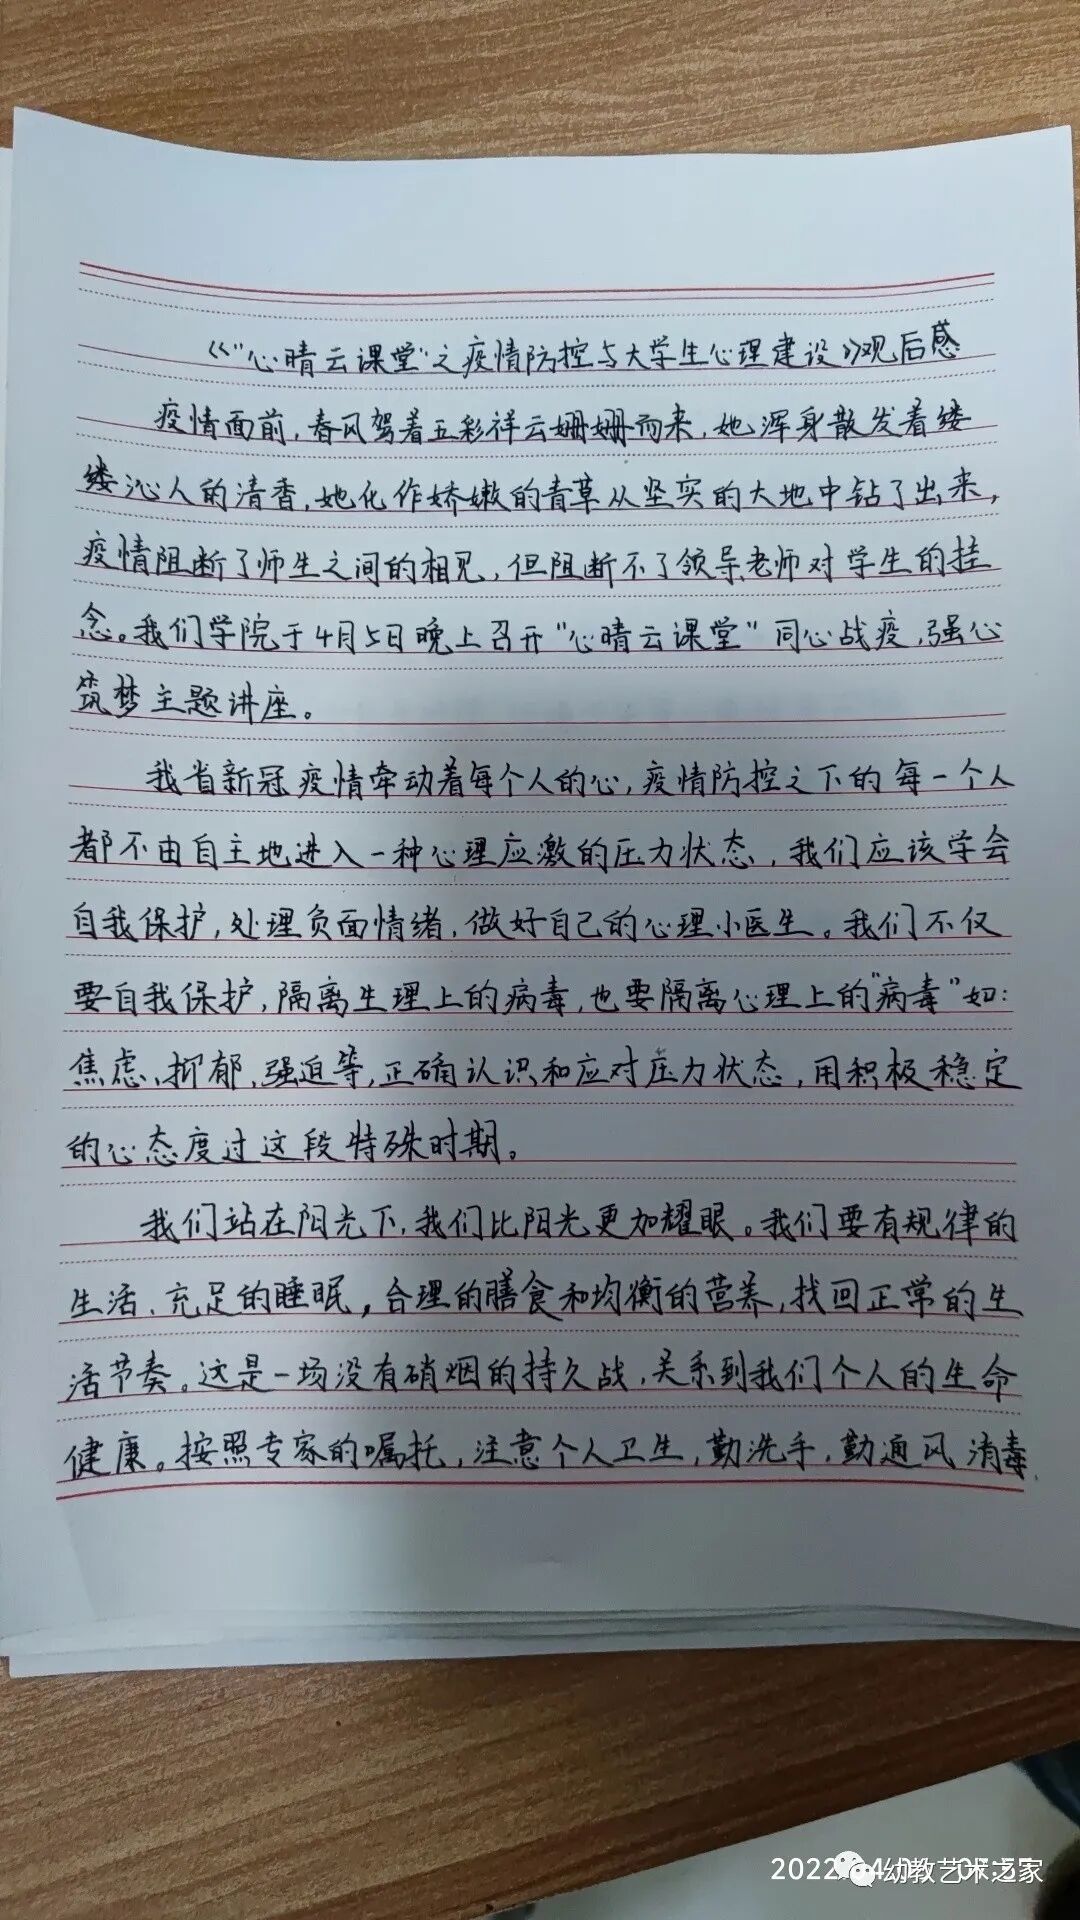 《“心晴云课堂”之疫情防控与大学生心理建设》观后感
疫情面前，春风驾着五彩祥云姗姗而来，她浑身散发着缕
缕沁人的清香，她化作娇嫩的青草从坚实的大地中钻了出来，
疫情阻断了师生之间的相见，但阻断不了领导老师对学生的挂
念。我们学院于4月5日晚上召开“心晴云课堂”同心战疫，强心
筑梦主题讲座。
我省新冠疫情牵动着每个人的心，疫情防控之下的每一个人
都不由自主地进入一种心理应激的压力状态，我们应该学会
自我保护，处理负面情绪，做好自己的心理小医生。我们不仅
要自我保护，隔离生理上的病毒，也要隔离心理上的“病毒”如：
焦虑、抑郁、强迫等，正确认识和应对压力状态，用积极稳定
的心态度过这段特殊时期。
我们站在阳光下，我们比阳光更加耀眼。我们要有规律的
生活、充足的睡眠，合理的膳食和均衡的营养，找回正常的生
活节奏。这是一场没有硝烟的持久战，关系到我们个人的生命
健康。按照专家的嘱托，注意个人卫生，勤洗手，勤通风消毒，
幼教艺术之家